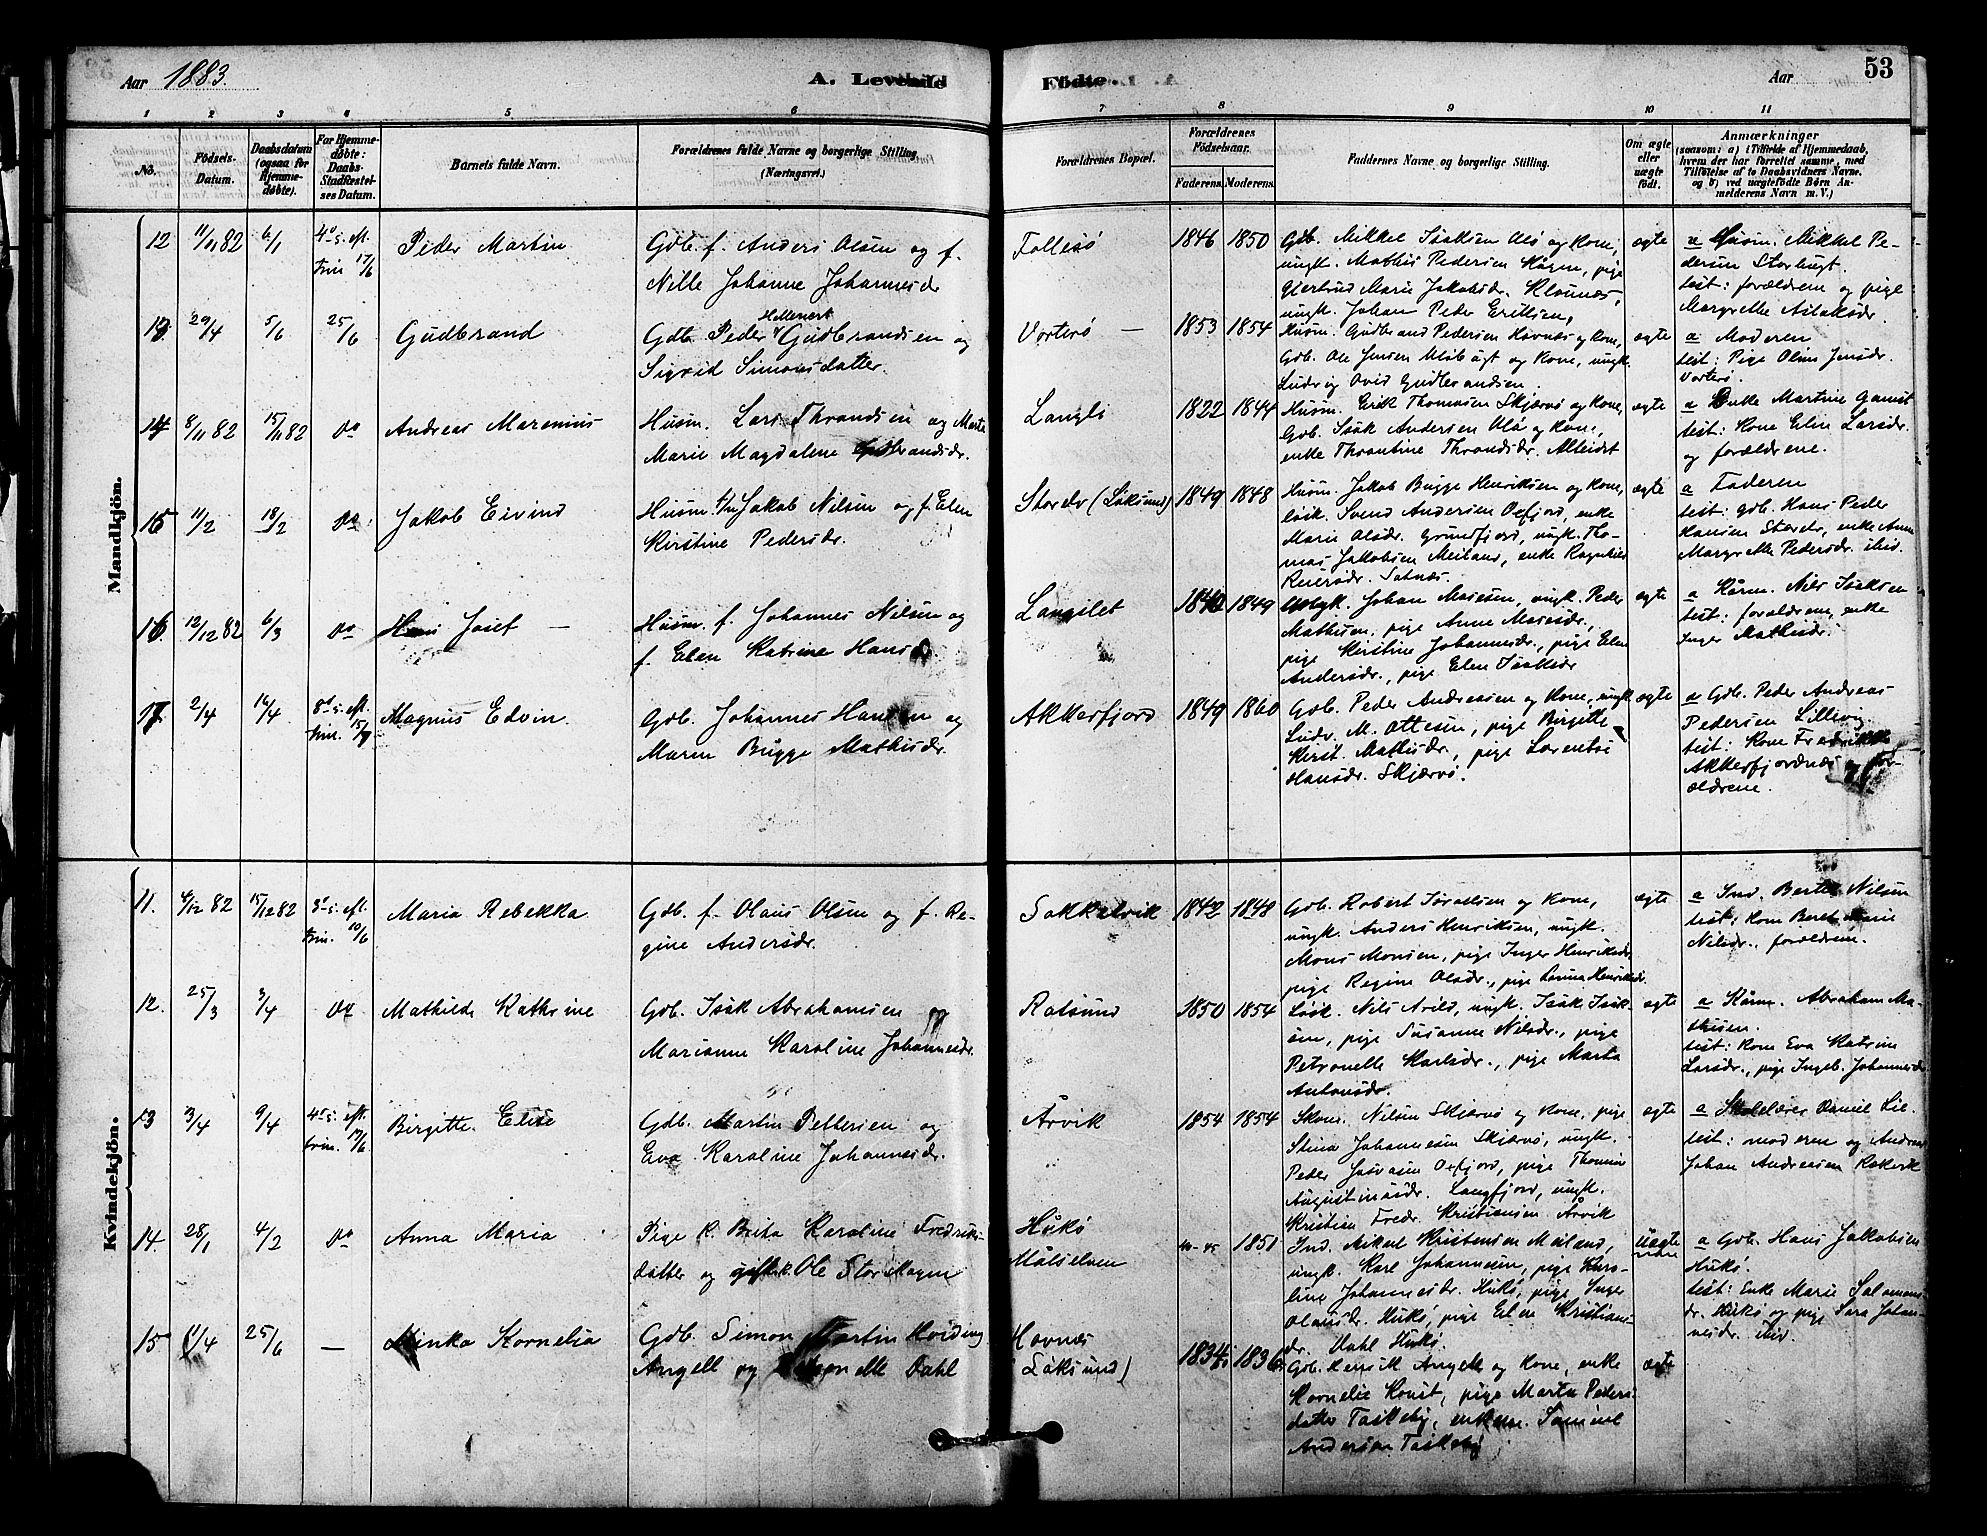 Aar 1883.
A. Levende
Fødte.
Aar
53
1 2 3 4 5 6 7 8 9 10 11
No.
Fødsels-
Datum.
Daabsdatum
(ogsaa for
Hjemme-
døbte).
For Hjemme-
døbte:
Daabs-
Stadfæstel-
ses Datum.
Barnets fulde Navn.
Forældrenes fulde Navne og borgerlige Stilling.
(Næringsvei.)
Forældrenes Bopæl.
Forældrenes
Fødselsaar.
Faderens. Moderens.
Faddernes Navne og borgerlige Stilling.
Om ægte
eller
uægte
født.
Anmærkninger
(saasom: a) i Tilfælde af Hjemmedaab,
hvem der har forrettet samme, med
Tilføielse af to Daabsvidners Navne.
og b) ved uægtefødte Børn An-
melderens Navn m. V.)
Mandkjøn.
12 11/11 82 6/1 4de s. eft.
trin. 17/6
Peder Martin
Gdb. f. Anders Olsen og f.
Nille Johanne Johannesdr
Follesø
1846 1850
Gdb. Mikkel Isaksen Uløs og Kone,
ungk. Mathis Pedersen Kågen, pige
Gjertrud Marie Jakobsdr. Klounæs,
ungk. Johan Peder Eriksen,
ægte
a Husm. Mikkel Pe-
dersen Storbugt.
test: forældrene og pige
Margrethe Aslaksdr.
13. 29/4 5/6 25/6
Gudbrand
Gdb. Peder Hellenert Gudbrandsen og
Sigrid Simonsdatter.
Vorterø
1853 1854
Husm. Gudbrand Pedersen Havnnæs og Kone,
Gdb. Ole Jensen og Kone, ungk.
Ludvig Ovid Gudbrandsen.
ægte
a Moderen
test: Pige Oline Jensdr.
Vorterø.
14 8/11 82 15/11 82 do
Andreas Marenius
Husm. Lars Thrandsen og Marte
Marie Magdalene Gudbrandsdr.
Langli
1822 1844
Husm. Erik Thomasen Skjærvø og Kone,
Gdb. Isak Andersen Uløs og Kone,
enke Thrantine Thrandsdr. Alteidet
ægte
a Enke Martine Garnst
test: Kone Elen Larsdr.
og forældrene.
15 11/2 18/2 do
Jakob Eivind
Husm. f/n Jakob Nilsen og f. Elen
Kirstine Pedersdr.
Storelv (Løksund)
1849 1848
Husm. Jakob Bugge Henriksen og Kone,
løsk. Svend Andersen Oxfjord, enke
Marie Olsdr. Grundfjord, ungk. Tho-
mas Jakobsen Meiland, enke
Reiersdr.
ægte
a Faderen
test: Gdb. Hans Peder
Hansen Storelv, enke Anne
Margrethe Pedersdr. ibid.
16. 12/12 82 6/3 do
Hans Josef
Husm. f. Johannes Nilsen og
f. Elen Katrine Hansdr.
Langslet
1840 1849
Johan Mosesen, ungk. Peder
Mathisen, pige Anne Mosesdr.,
pige Kirstine Johannesdr., pige Elen
Andersdr., pige Elen Isaksdr
ægte
a Kårm. Nils Isaksen
test: forældrene, enke
Inger Mathisdr.
17. 2/4 16/4 8de s. eft.
trin. 15/7
Magnus Edvin.
Gdb. Johannes Hansen og
Maren Bugge Mathisdr.
Akkerfjord
1849 1860
Gdb. Peder Andreasen og Kone, ungk
Ludv. M. Ottesen, pige Birgitte
Kirst. Mathisdr, pige Lorentse
Hansdr. Skjærvø.
ægte
a Gdb. Peder Andreas
Pedersen Lillevig
test: Kone Fredrikke
Akkerfjordnæs og for-
ældrene.
Kvindekjøn.
11. 4/12 82 15/12 82 3de s. eft.
trin. 10/6
Maria Rebekka
Gdb. f. Olaus Olsen og f. Re-
gine Andersdr.
Sokkelvik
1842 1848
Gdb. Robert Isralsen og Kone,
ungk. Anders Henriksen, ungk.
Mons Monsen, pige Inger Henriksdr
pige Regine Olsdr., pige Hanna Henriksdr
ægte
a Ind. Bertel Nilsen
test: Kone Beret Marie
Nilsdr., forældrene.
12. 25/3 3/4 do
Mathilde Kathrine
Gdb. Isak Abrahamsen og
Marianne Karoline Johannesdr.
Rotsund
1850 1854
Løsk. Nils Arild, ungk. Isak Isak-
sen, pige Susanne Nilsdr., pige
Petronelle Karlsdr., pige Marta
Antonsdr.
ægte
a Kårm. Abraham Ma-
thisen.
test: Kone Eva Katrine
Larsdr., pige Ingeb. Johannesdr
13 3/4 9/4 4de s. eft.
trin. 17/6
Birgitte Elise
Gdb. Martin Pettersen og
Eva Karoline Johannesdr.
Årvik
1854 1854
Skom. Nilsen Skjærvø og Kone, pige
Stina Johannesen Skjærvø, ungk.
Peder Josvasen Oxfjord, pige Thomine
Augustinusdr. Langfjord, ungk.
Kristian Fredr. Kristiansen Årvik
ægte
a Skolelærer Daniel Lie.
test: moderen og Andreas
Johan Andreasen Rakvik
14. 28/1 4/2 do
Anna Maria
Pige K. Berta Karoline Fredriks-
datter og gift k. Ole Stor Mogen
Hukø
Målselven
40-45 1851
Ind. Mikal Kristensen Meiland,
ungk. Karl Johannesen, pige Karo-
line Johannesdr. Hukø, pige Inger
Olausdr. Hukø, pige Elen Kristians-
dr. Dahl Hukø.
uægte
a Gdb. Hans Jakobsen
Hukø.
test: Enke Marie Salamons-
dr. Hukø og pige Sara Johan-
nesdr. ibid.
15 1/4 25/6 —
Minka Kornelia
Gdb. Simon Martin Hviding
Angell og Dahl
Havnæs
(Løksund)
1834 1836
Gdb. Henrik Angell og Kone, enke
Kornelie Konst, pige Marta Peders
datter Taskeby, enkem. Samuel
Andersen Taskeby
ægte